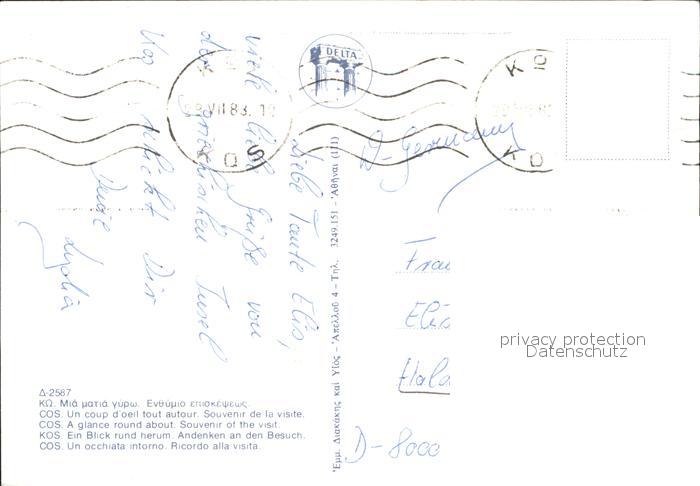 Liebe Tante Elis,
viele liebe Grüße von
der griechischen Insel
Kos schickt Dir
Deine
DELTA
ΚΩΣ
VII 83. 10
ΚΩ
D-Germany
Frau
Elis
Hala
D-8000
privacy protection
Datenschutz
Ἐμμ. Διακάκης καί Υἱός - Ἀπελλοῦ 4 - Τηλ. 3249.151 - Ἀθῆναι (111)
Δ-2587
ΚΩ. Μιά ματιά γύρω. Ενθύμιο επισκέψεως.
COS. Un coup d'oeil tout autour. Souvenir de la visite.
COS. A glance round about. Souvenir of the visit.
KOS. Ein Blick rund herum. Andenken an den Besuch.
COS. Un occhiata intorno. Ricordo alla visita.